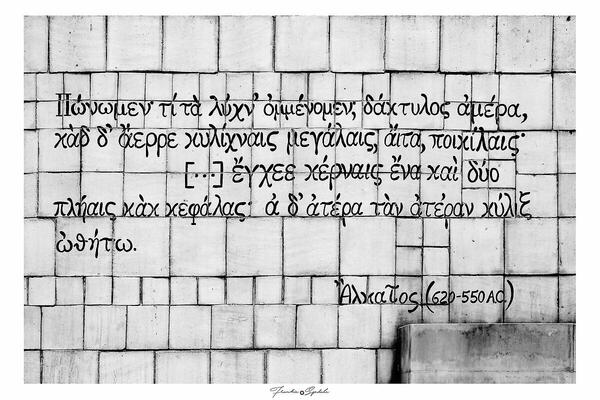 Πώνωμεν· τί τὰ λύχν' ὀμμένομεν; δάκτυλος ἀμέρα,
κὰδ δ' ἄερρε κυλίχναις μεγάλαις, ἄιτα, ποικίλαις·
[...] ἔγχεε κέρναις ἔνα καὶ δύο
πλήαις κὰκ κεφάλας· ἀ δ' ἀτέρα τὰν ἀτέραν κύλιξ
ὠθήτω.
Ἀλκαῖος (620-550 AC.)